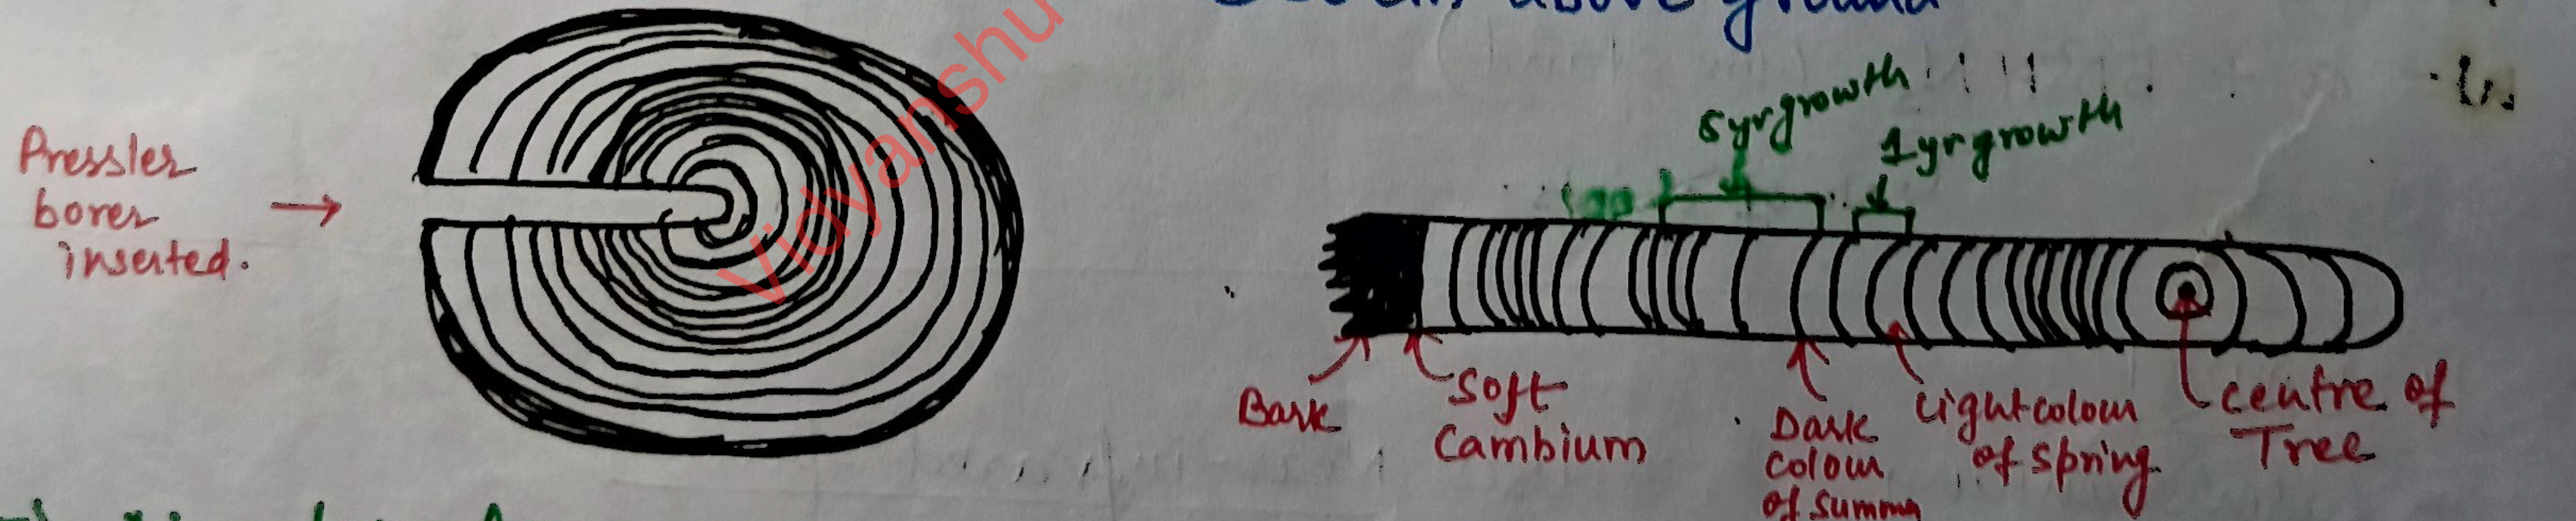 above ground
Pressler
borer
inserted.
Vidyanshu
5 yr growth
1 yr growth
Bark
Soft
Cambium
Dark
colour
of summe
Light colour
of spring
centre of
Tree